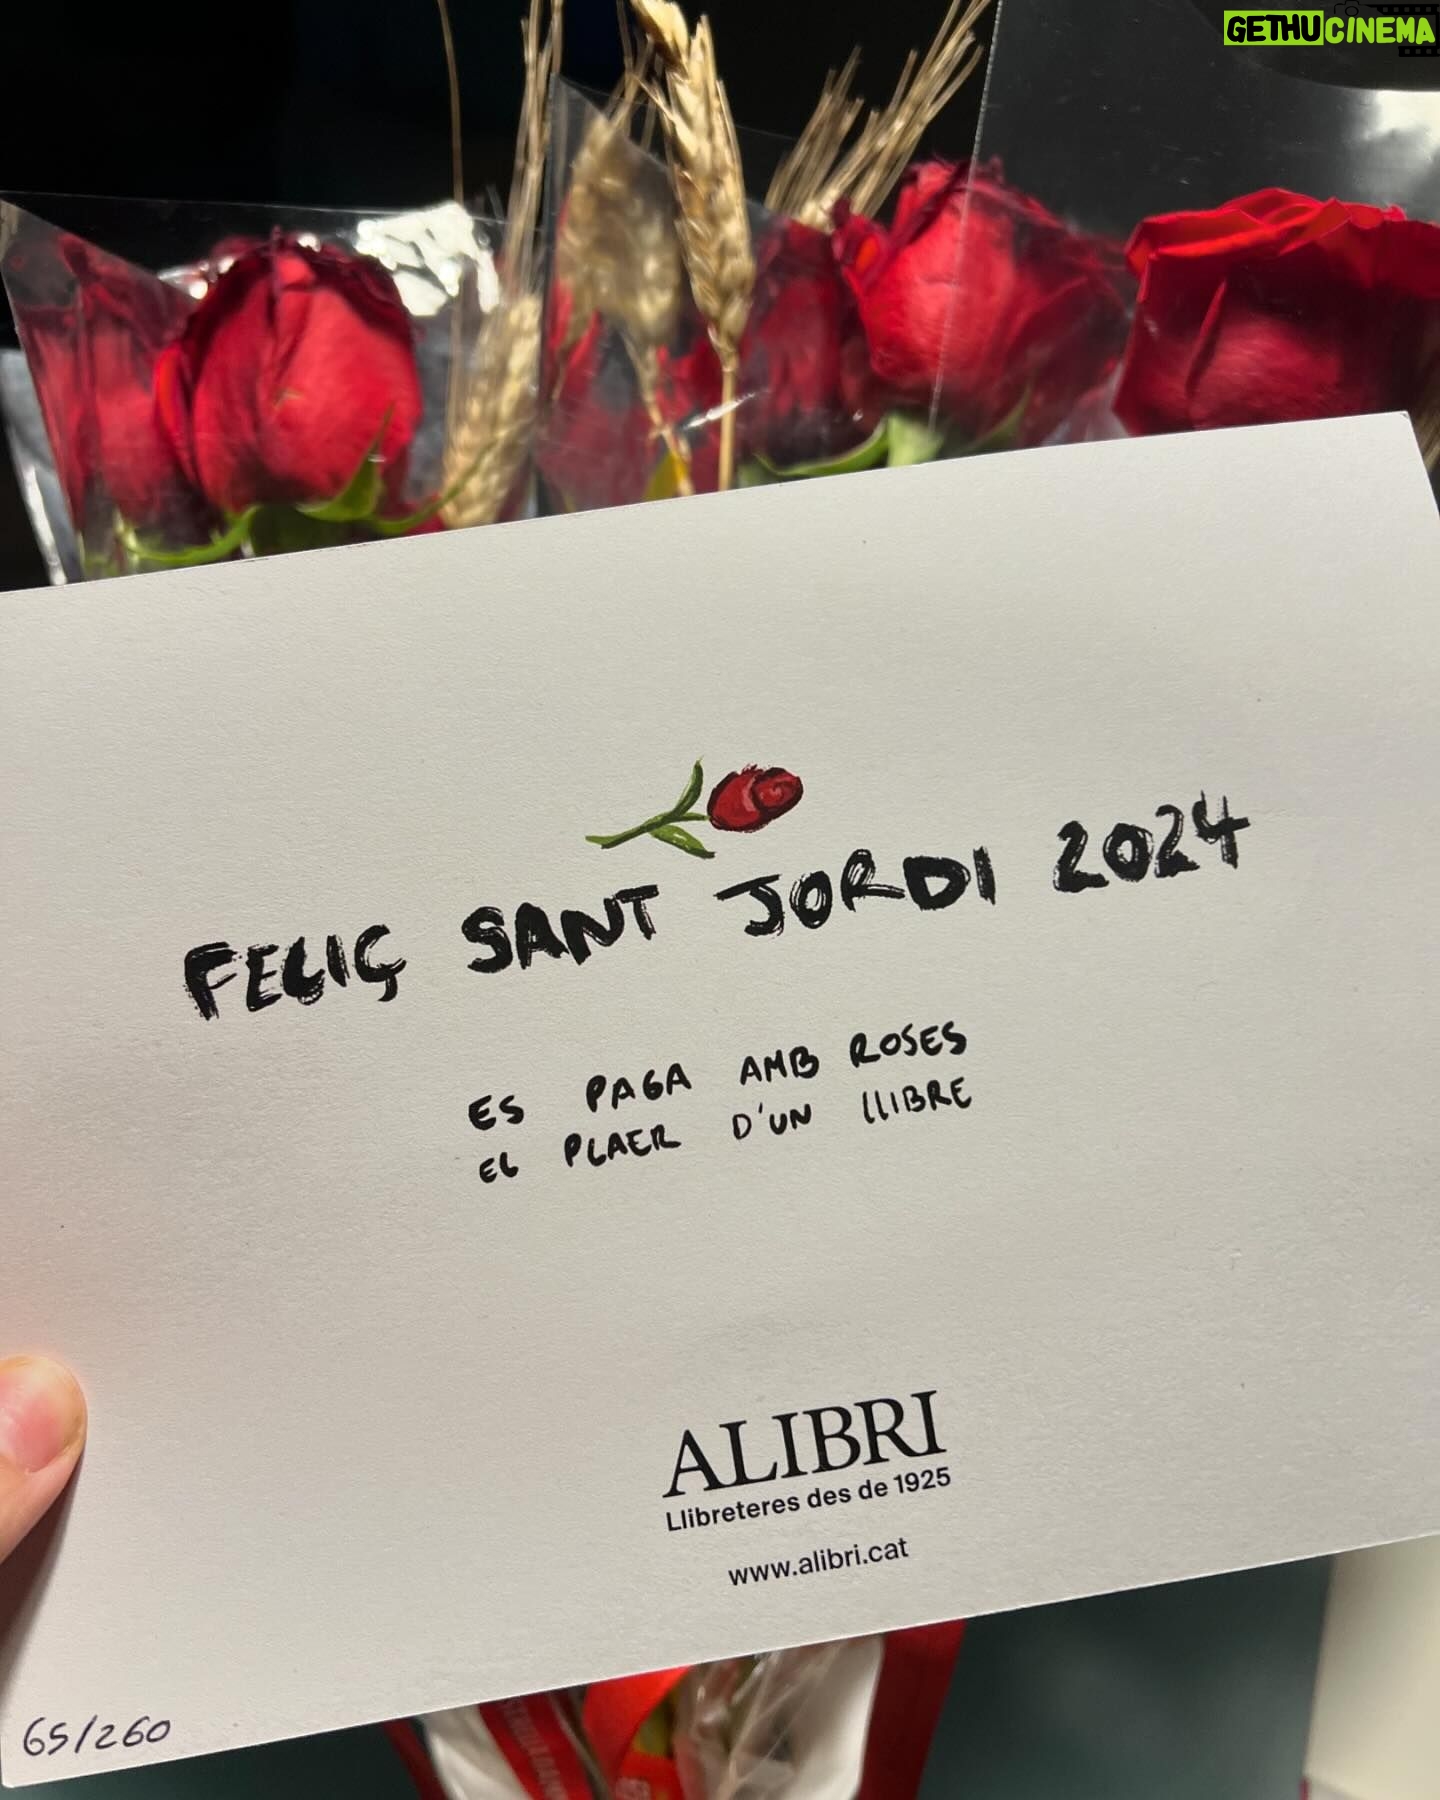 GETHUCINEMA
FELIÇ SANT JORDI 2024
ES PAGA AMB ROSES
EL PLAER D'UN LLIBRE
ALIBRI
Llibreteres des de 1925
www.alibri.cat
65/260